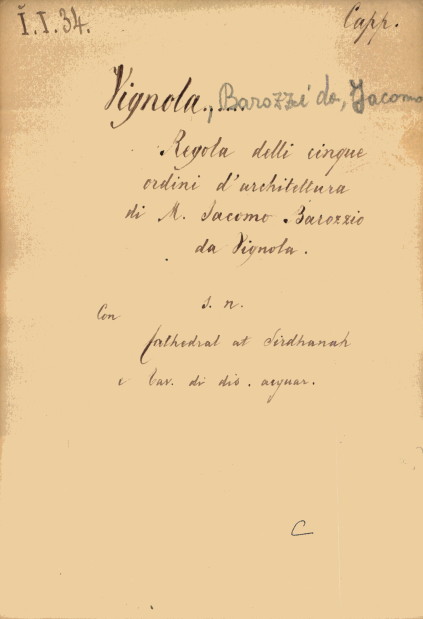 I.I.34.
Capp.
Vignola, Barozzi da, Jacomo
Regola delli cinque
ordini d'architettura
di M. Iacomo Barozzio
da Vignola.
s. n.
Con
Cathedral at Sirdhanah
e tav. di dis. acquar.
C